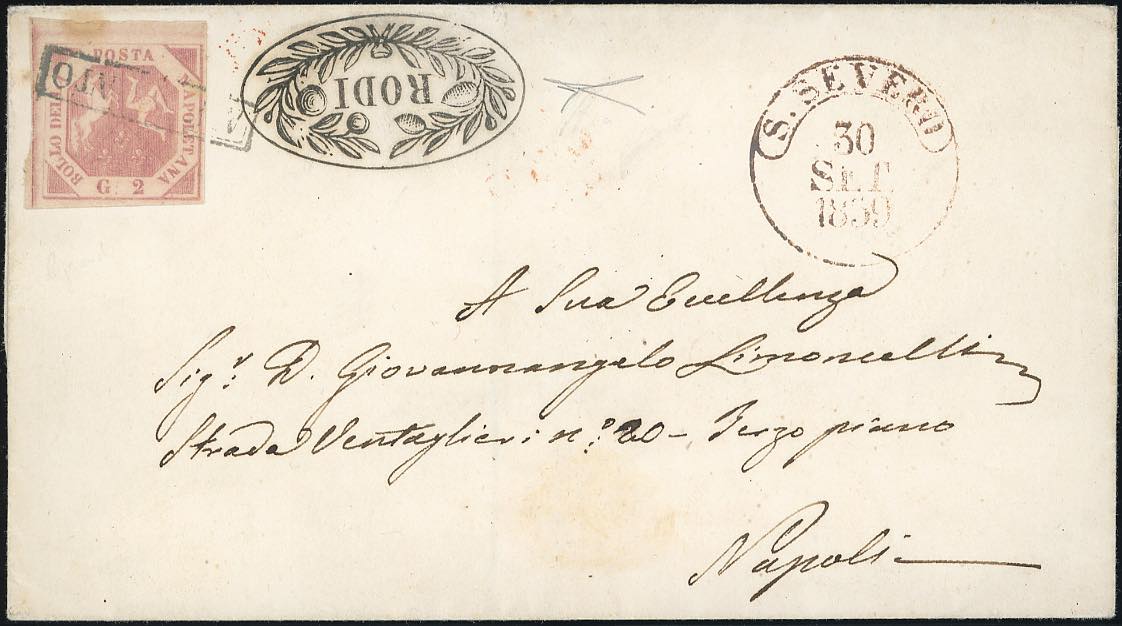 POSTA NAPOLETANA
BOLLO DELLA
G. 2
RODI
S. SEVERO
30
SET
1859
A Sua Eccellenza
Sigr. D. Giovannangelo Limoncelli
Strada Ventaglieri n.º 20 - Terzo piano
Napoli